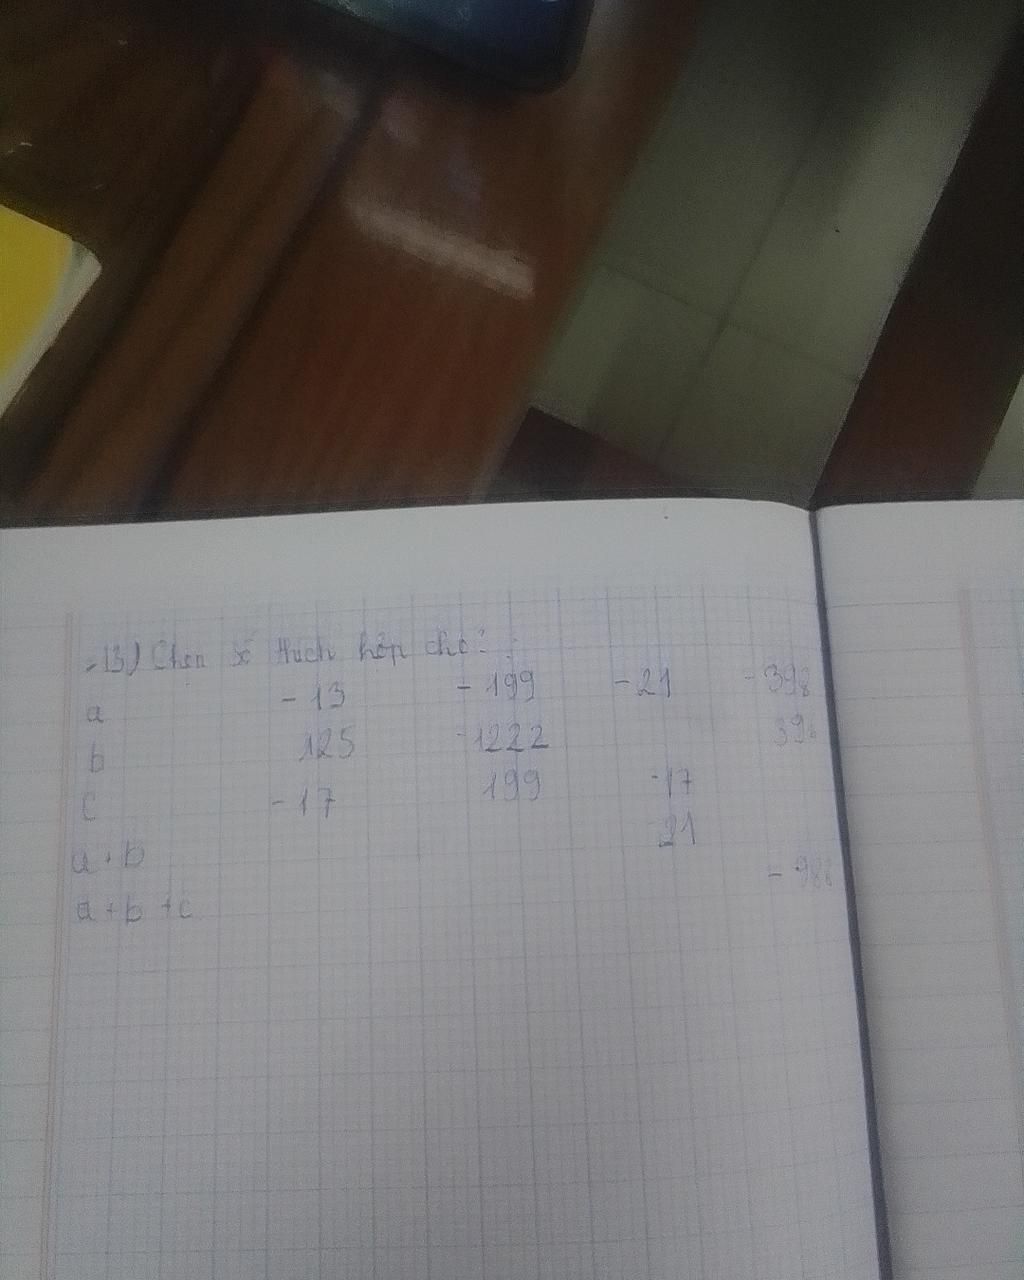 13) Chọn số thích hợp cho ? :
a - 13 - 199 - 21 - 398
b 125 -1222
c - 17 199 -17
a + b 21
a + b + c